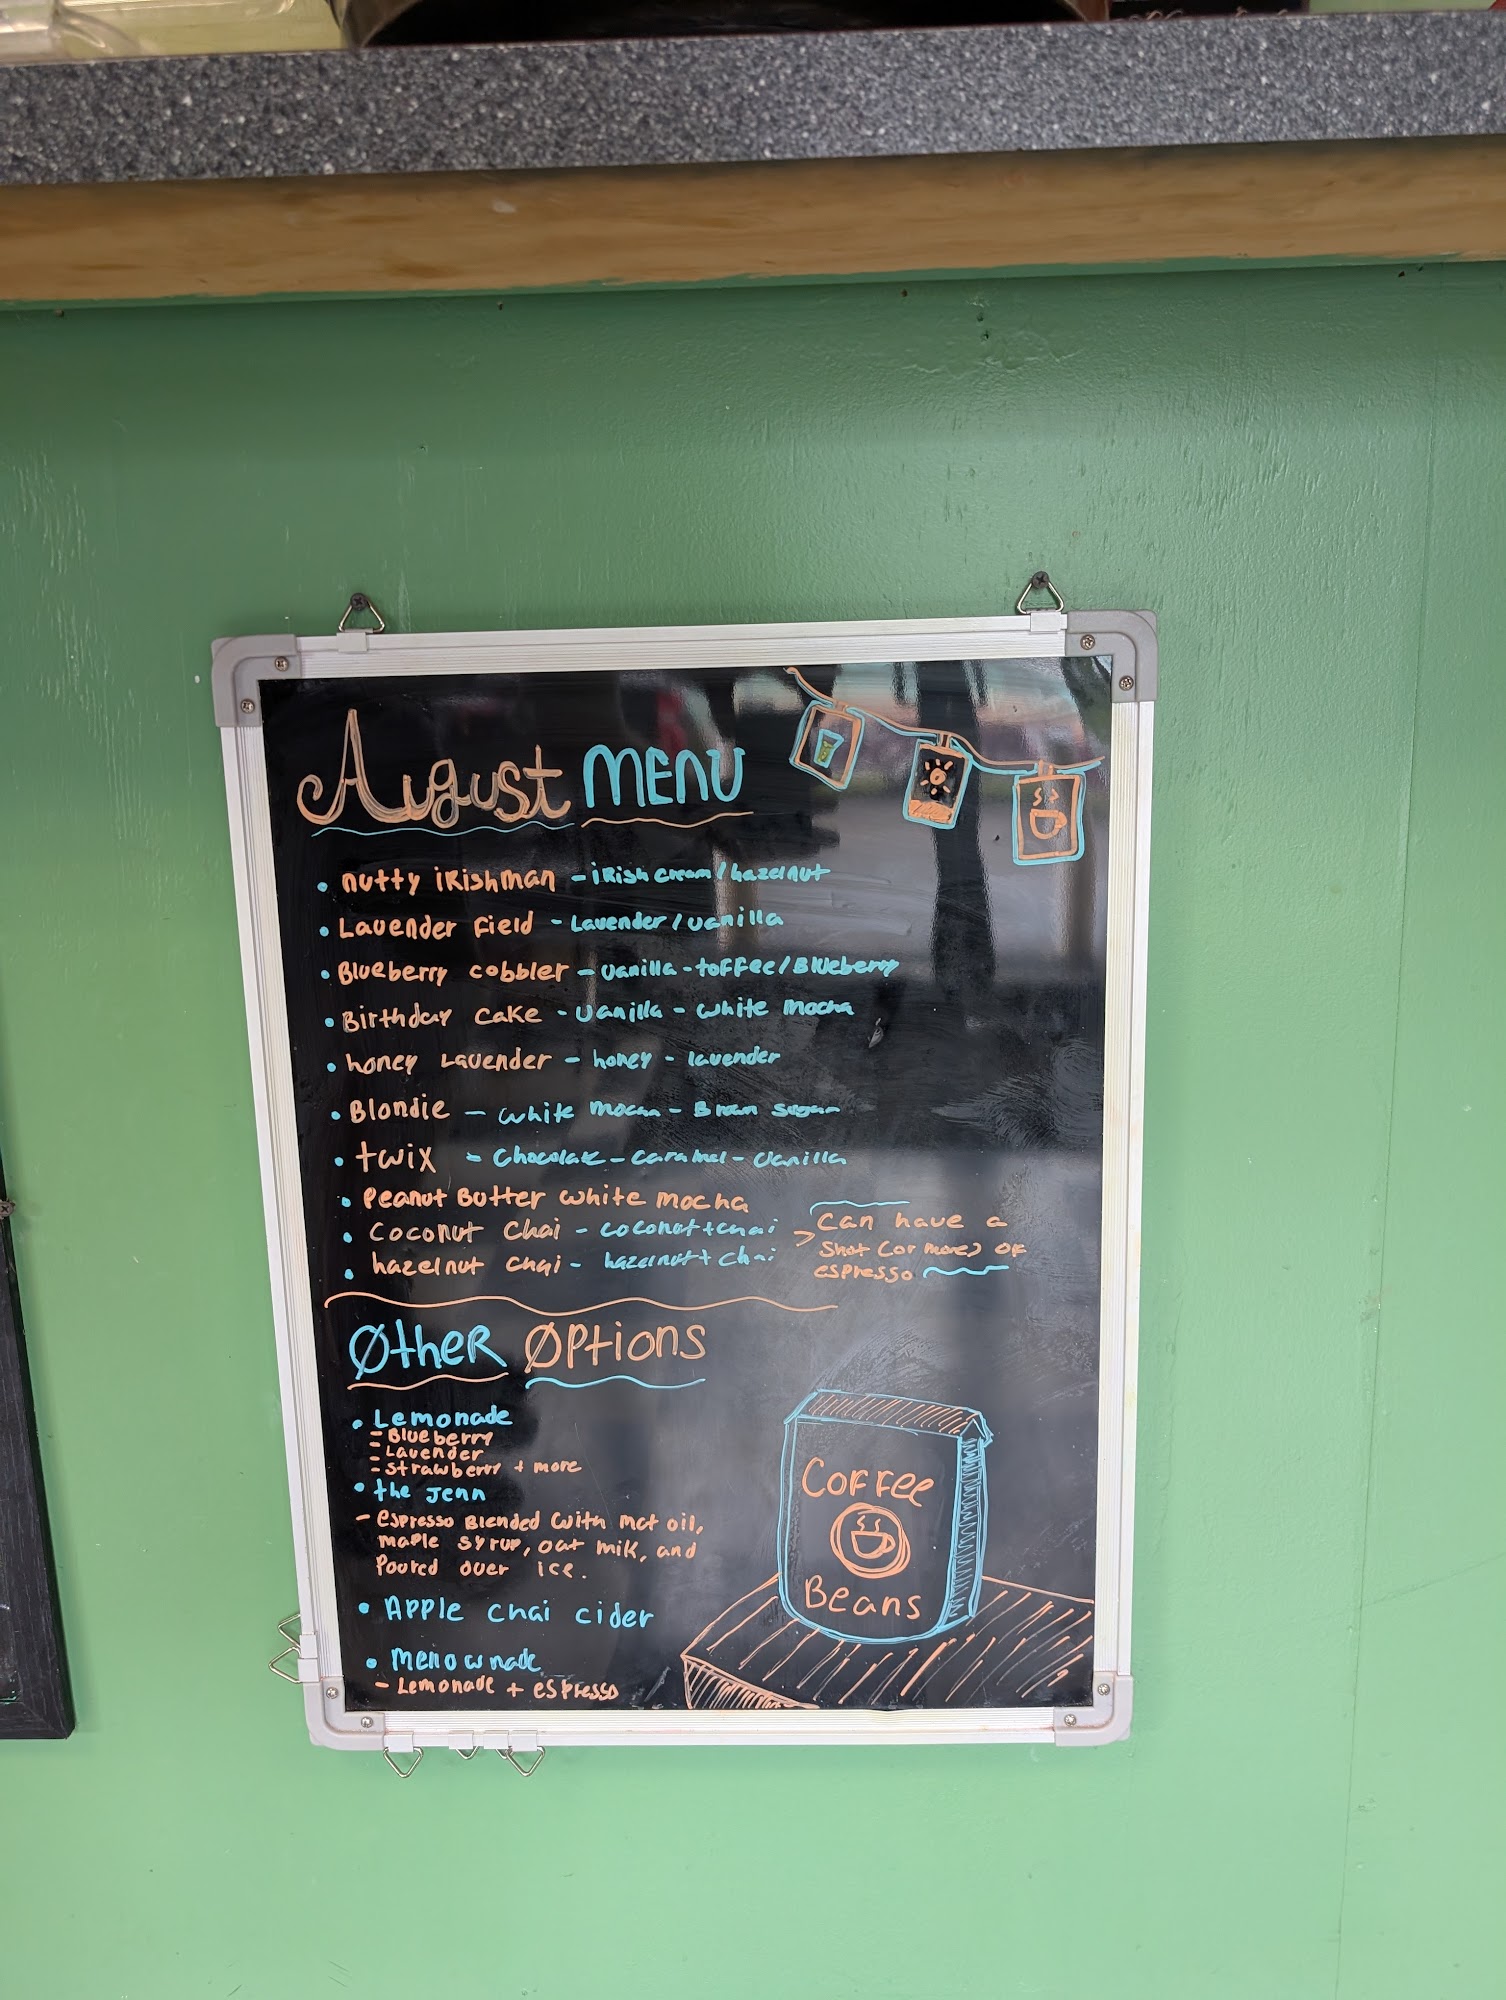 August MENU
• nutty iRishman - iRish cream/hazelnut
• Lavender Field - Lavender/vanilla
• Blueberry cobbler - vanilla-toffee/Blueberry
• Birthday cake - vanilla - white mocha
• honey Lavender - honey - lavender
• Blondie - white mocha - Brown sugar
• twix - Chocolate - caramel - vanilla
• Peanut Butter white mocha
• Coconut Chai - coconut + chai
• hazelnut chai - hazelnut + chai
> Can have a
shot (or more) of
espresso
Other Options
• Lemonade
- Blueberry
- Lavender
- Strawberry + more
• the Jenn
- espresso Blended with mct oil,
maple syrup, oat milk, and
Poured over ice.
• Apple chai cider
• Menownade
- Lemonade + espresso
Coffee
Beans